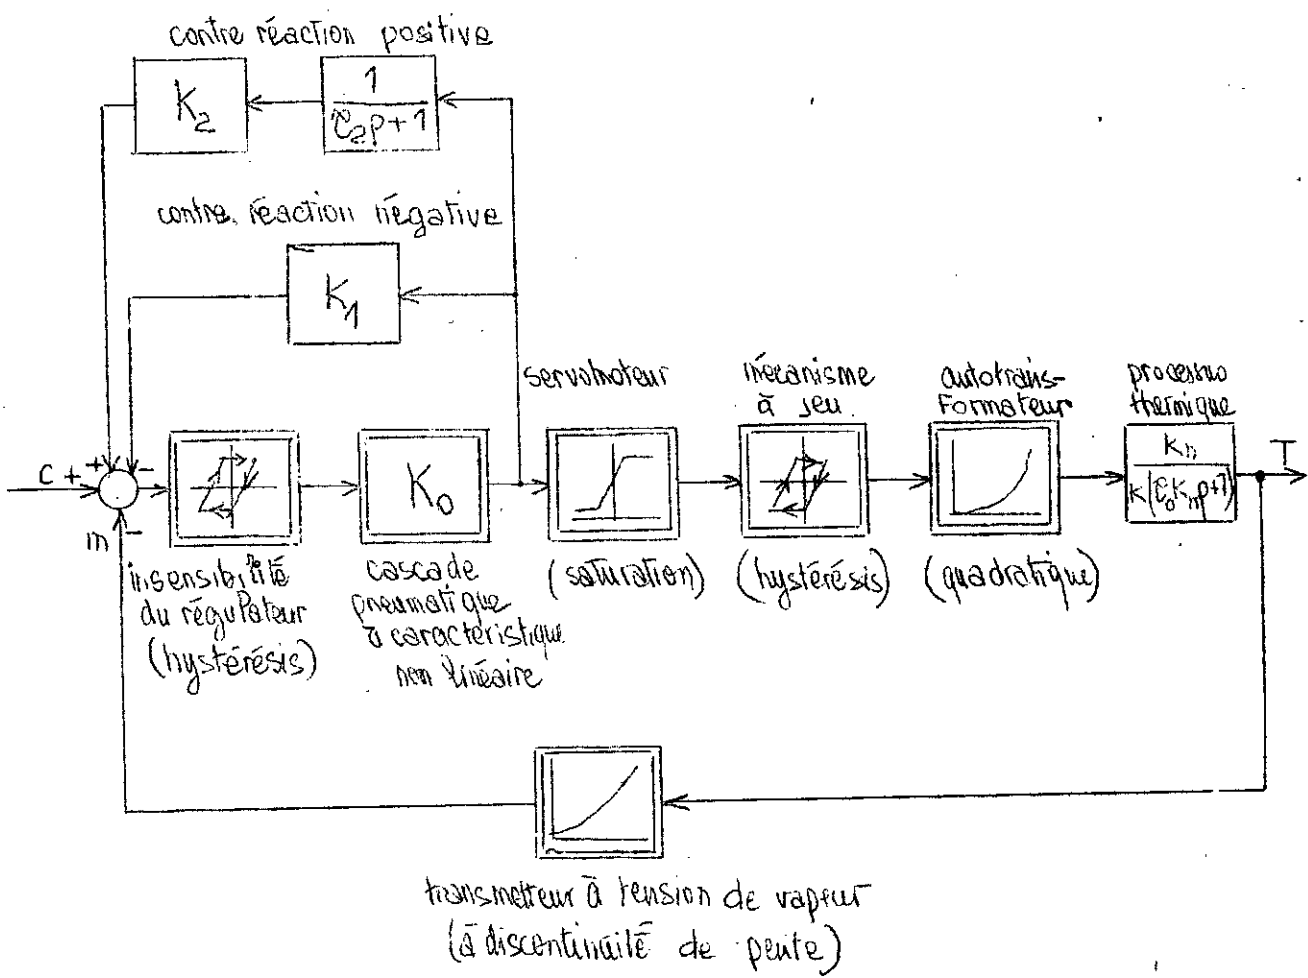 contre réaction positive
K₂
1
τ₂p+1
contre réaction négative
K₁
servomoteur
mécanisme
à jeu
autotrans-
formateur
processus
thermique
C
+
+
-
-
K₀
Kₙ
K(τ₀Kₙp+1)
T
m
-
insensibilité
du régulateur
(hystérésis)
cascade
pneumatique
à caractéristique
non linéaire
(saturation)
(hystérésis)
(quadratique)
transmetteur à tension de vapeur
(à discontinuité de pente)